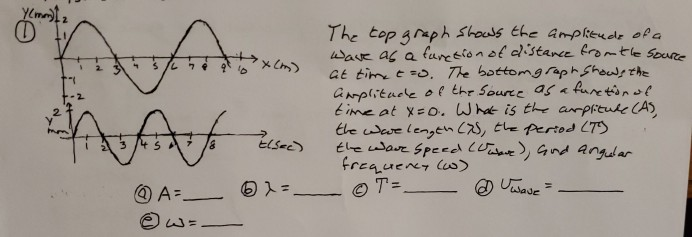 ①
Y(mm)
2
1
-1
-2
1 2 3 4 5 6 7 8 9 10
x(m)
Y
mm
2
1 2 3 4 5 6 7 8
t(sec)
The top graph shows the amplitude of a
wave as a function of distance from the source
at time t=0. The bottom graph shows the
amplitude of the source as a function of
time at x=0. What is the amplitude (A),
the wavelength (λ), the period (T)
the wave speed (Uwave), and angular
frequency (ω)
ⓐ A= ____ ⓑ λ= ____ ⓒ T= ____ ⓓ Uwave = ____
ⓔ ω= ____